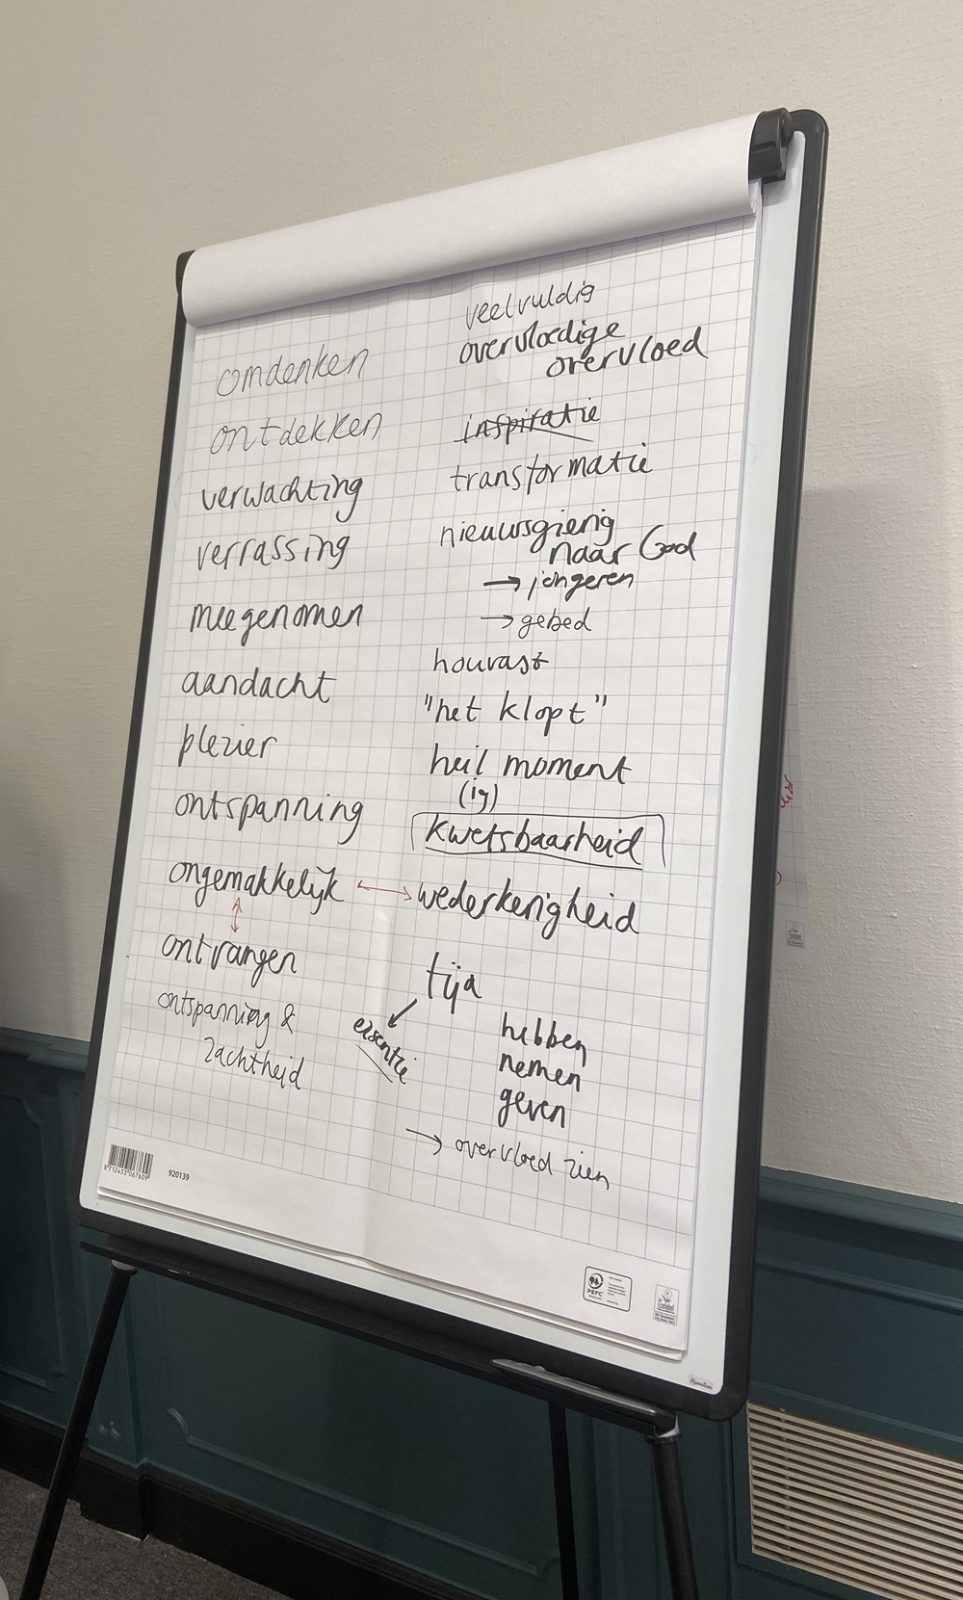 omdenken
ontdekken
verwachting
verrassing
meegenomen
aandacht
plezier
ontspanning
ongemakkelijk
ontvangen
ontspanning &
zachtheid
veelvuldig
overvloedige
overvloed
inspiratie
transformatie
nieuwsgierig
naar God
→ jongeren
→ gebed
houvast
"het klopt"
heil moment
(ig)
kwetsbaarheid
wederkerigheid
tija
essentie
hebben
nemen
geven
→ overvloed zien
8712453067609
920139
PEFC